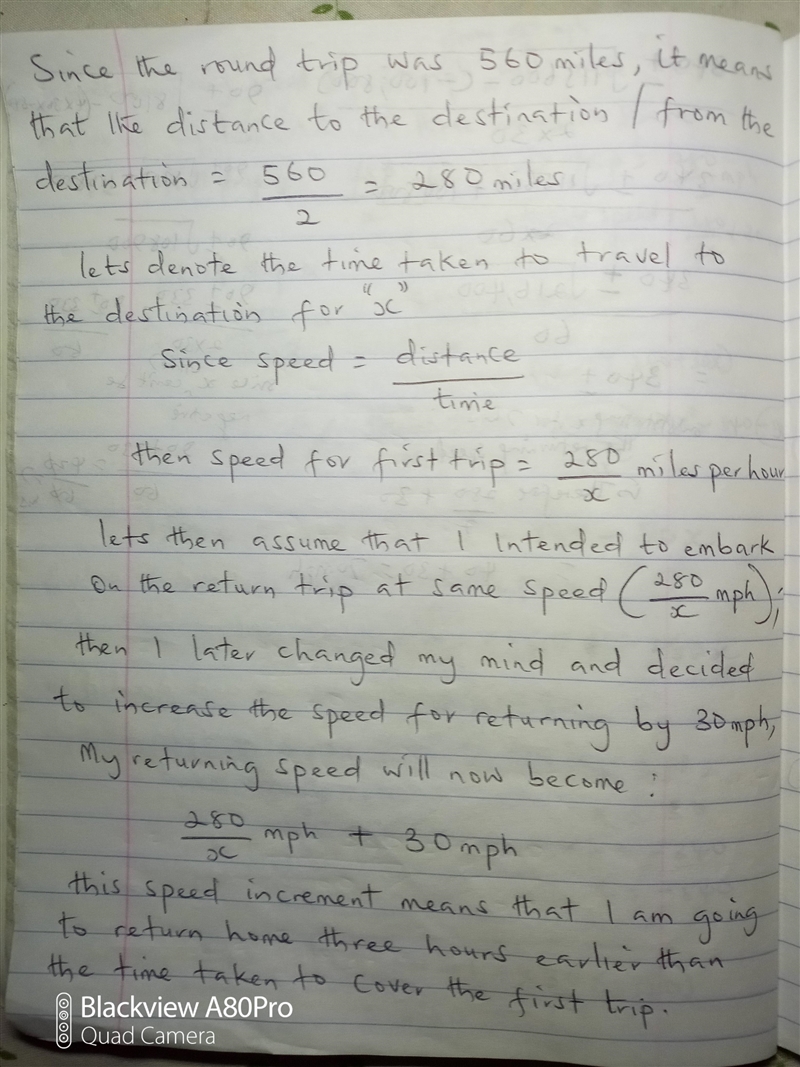 Since the round trip was 560 miles, it means
that the distance to the destination / from the
destination = 560/2 = 280 miles
lets denote the time taken to travel to
the destination for "x"
Since speed = distance/time
then speed for first trip = 280/x miles per hour
lets then assume that I intended to embark
on the return trip at same speed (280/x mph);
then I later changed my mind and decided
to increase the speed for returning by 30mph,
My returning speed will now become :
280/x mph + 30mph
this speed increment means that I am going
to return home three hours earlier than
the time taken to cover the first trip.
Blackview A80Pro
Quad Camera